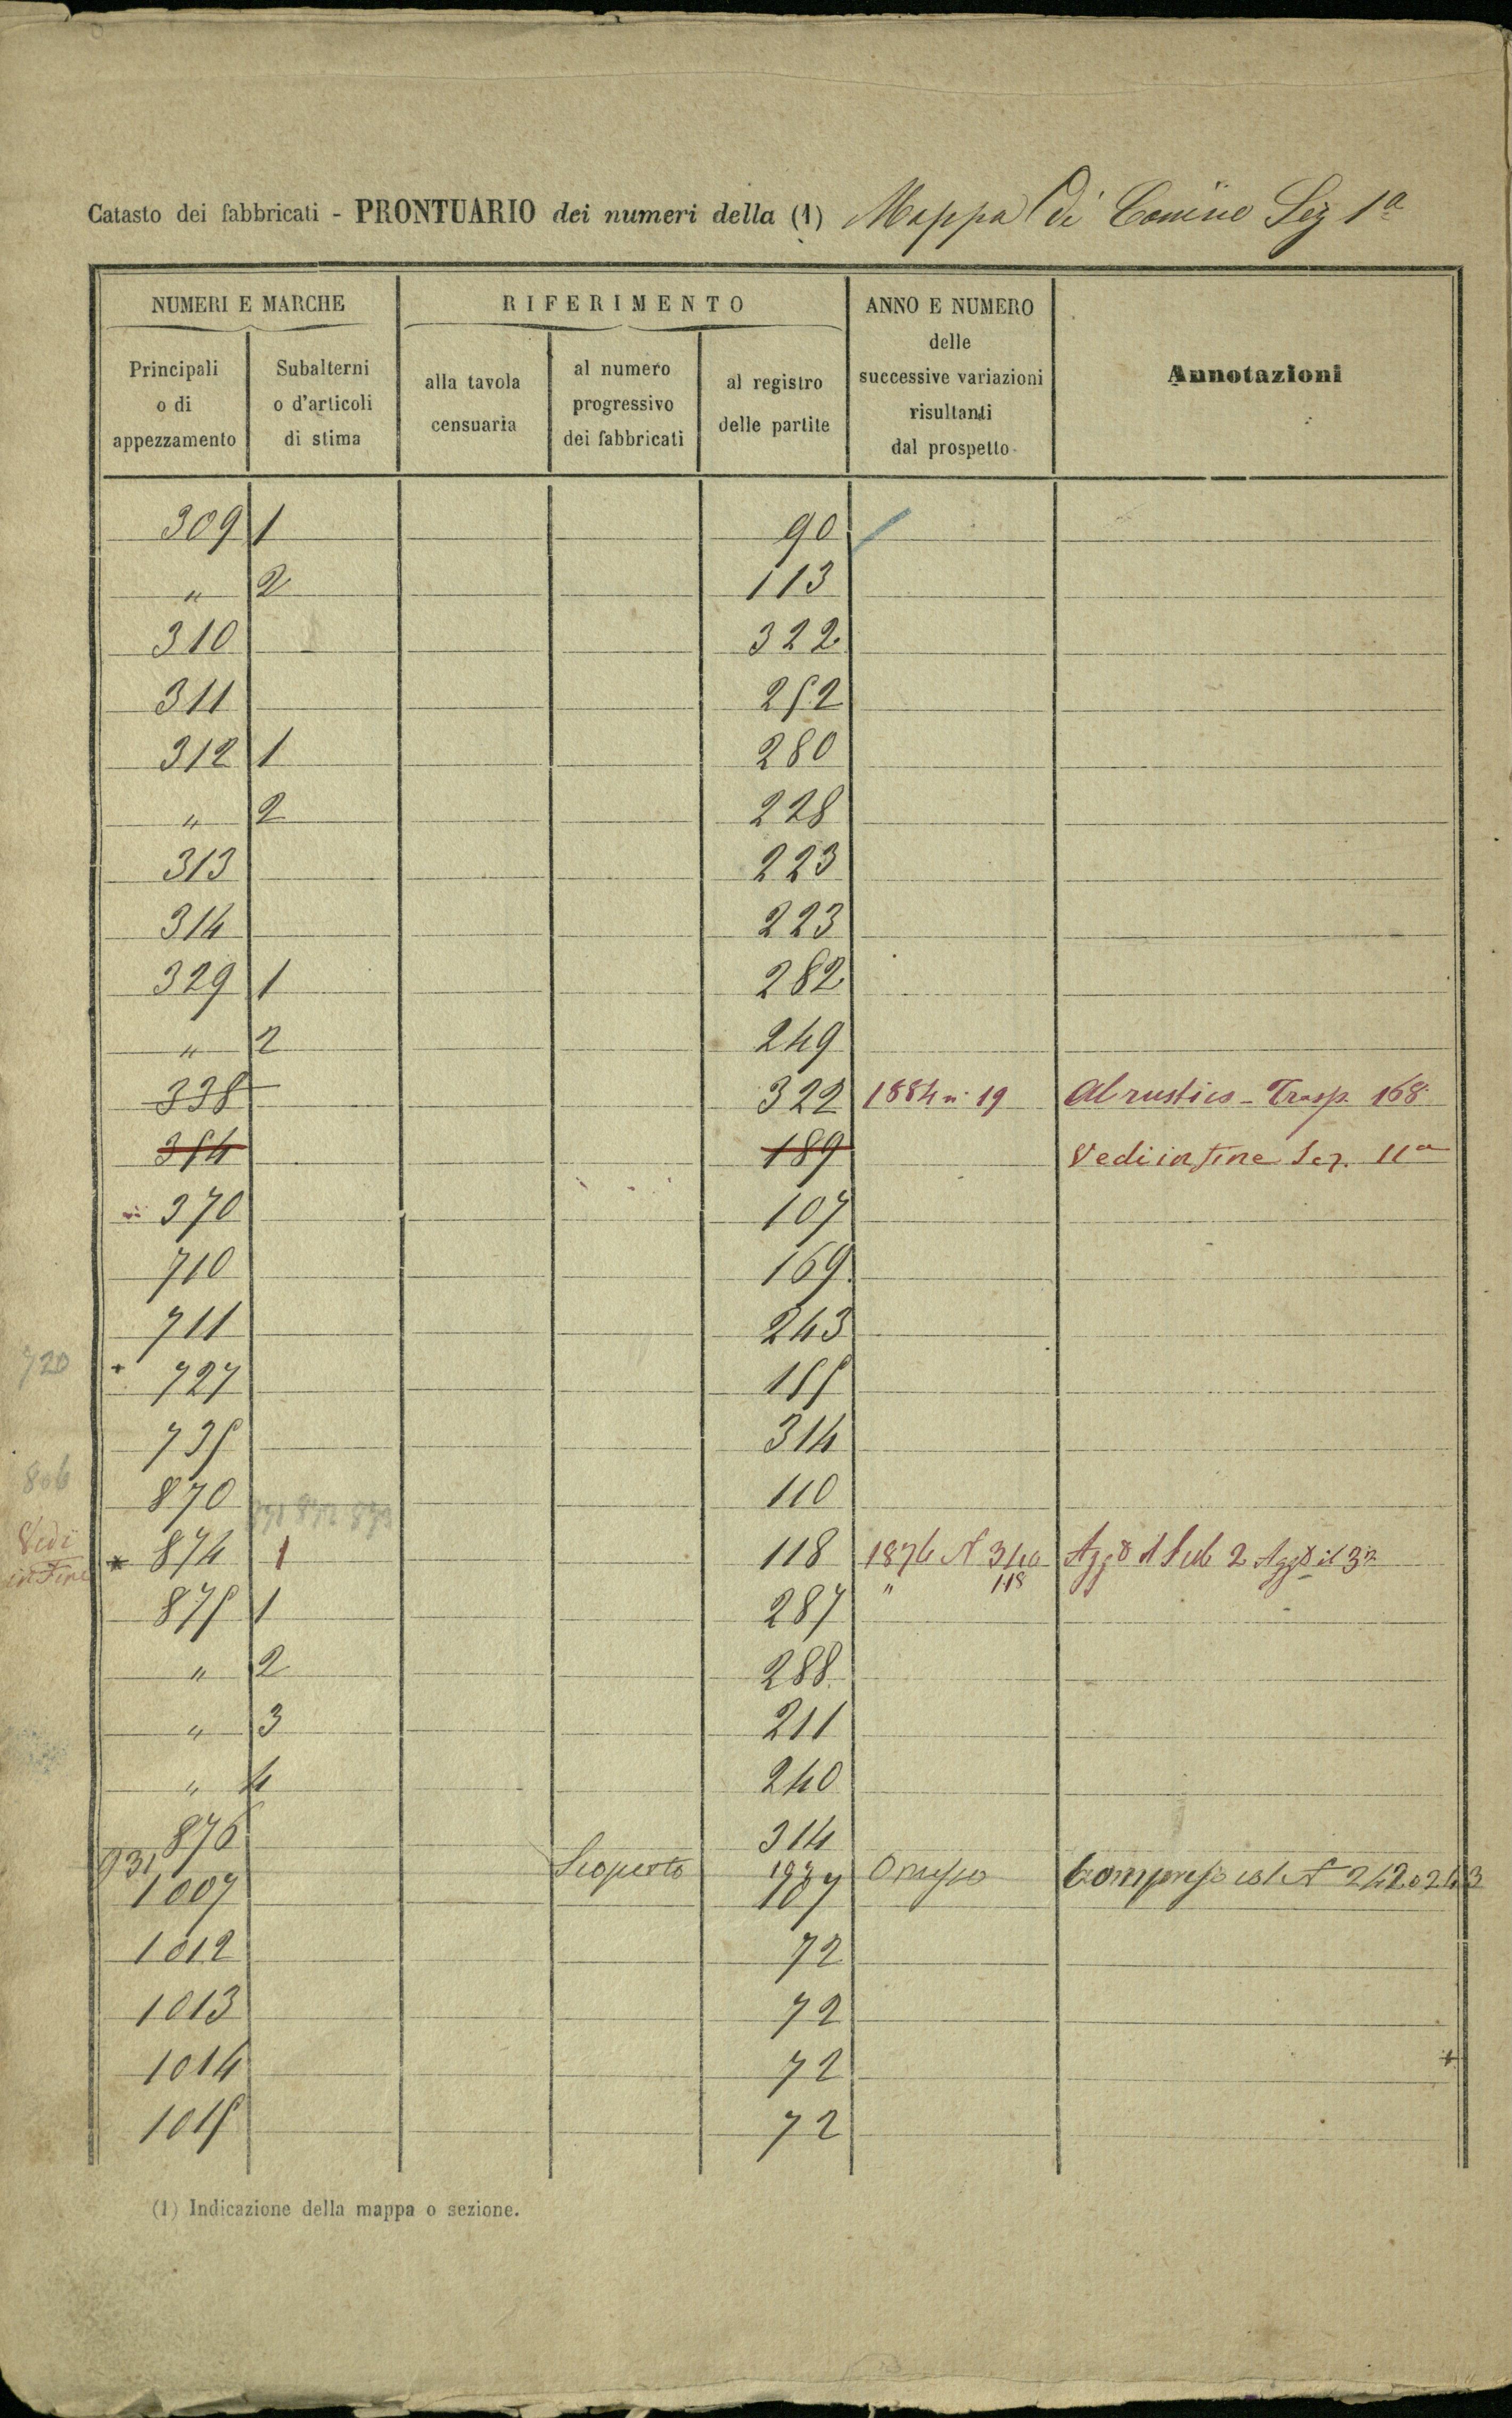 Catasto dei fabbricati - PRONTUARIO dei numeri della (1) Mappa di Sez 1a
NUMERI E MARCHE
RIFERIMENTO
ANNO E NUMERO
delle
successive variazioni
risultanti
dal prospetto
Annotazioni
Principali
o di
appezzamento
Subalterni
o d'articoli
di stima
alla tavola
censuaria
al numero
progressivo
dei fabbricati
al registro
delle partite
309 1 90
" 2 113
310 322
311 252
312 1 280
" 2 228
313 223
314 223
329 1 282
" 2 249
338 322 1884 n. 19 Al rustico - Trasp. 168
354 189 Vedi in fine Sez. 11a
370 107
710 169
711 243
720 727 155
735 314
806 870 110
871 872 873
Vedi
in Fine
* 874 1 118 1876 N 340 Agg° il Sub 2 Agg° il 3°
" 118
875 1 287
" 2 288
" 3 211
" 4 240
876 314
931 Scoperto Omesso Compreso col N 242 o 243
1007 107
1012 72
1013 72
1014 72
1015 72
(1) Indicazione della mappa o sezione.